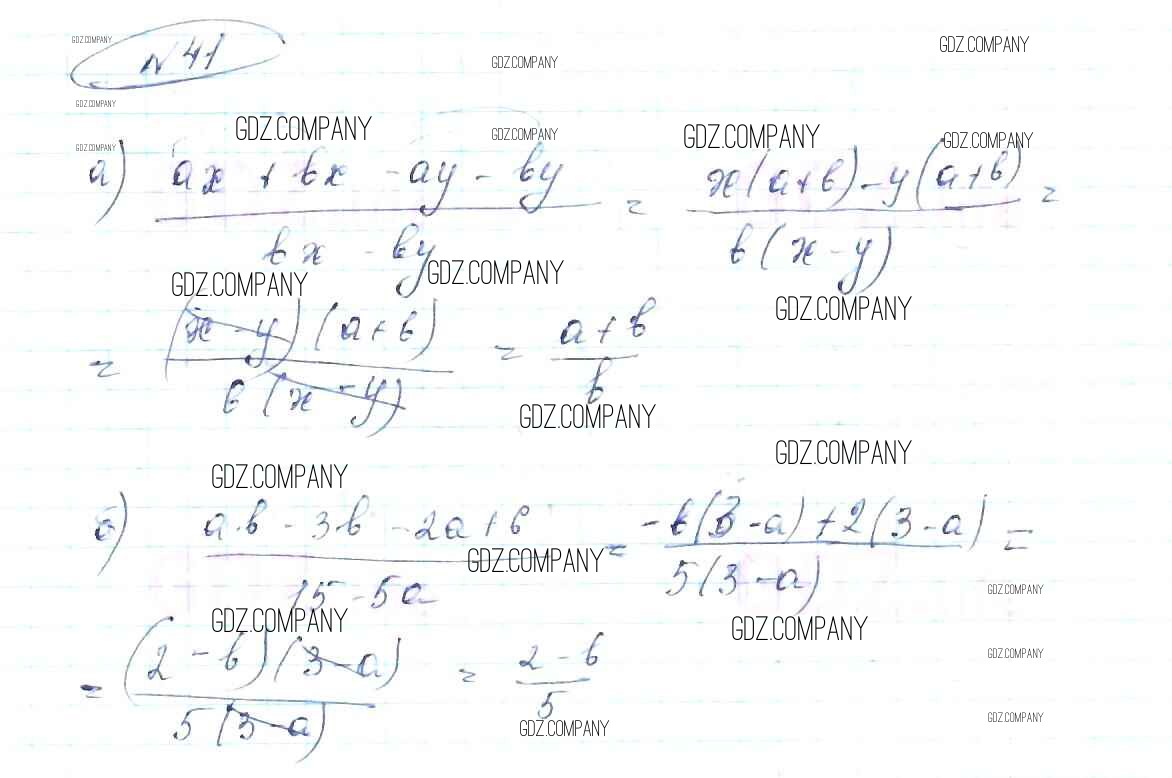 GDZ.COMPANY
№41
GDZ.COMPANY
GDZ.COMPANY
GDZ.COMPANY
GDZ.COMPANY
GDZ.COMPANY
GDZ.COMPANY
GDZ.COMPANY
GDZ.COMPANY
а) (ax + bx - ay - by) / (bx - by) = (x(a+b) - y(a+b)) / (b(x-y)) =
GDZ.COMPANY
GDZ.COMPANY
GDZ.COMPANY
= ((x-y)(a+b)) / (b(x-y)) = (a+b) / b
GDZ.COMPANY
GDZ.COMPANY
GDZ.COMPANY
б) (ab - 3b - 2a + 6) / (15 - 5a) = (-b(3-a) + 2(3-a)) / (5(3-a)) =
GDZ.COMPANY
GDZ.COMPANY
GDZ.COMPANY
GDZ.COMPANY
= ((2-b)(3-a)) / (5(3-a)) = (2-b) / 5
GDZ.COMPANY
GDZ.COMPANY
GDZ.COMPANY